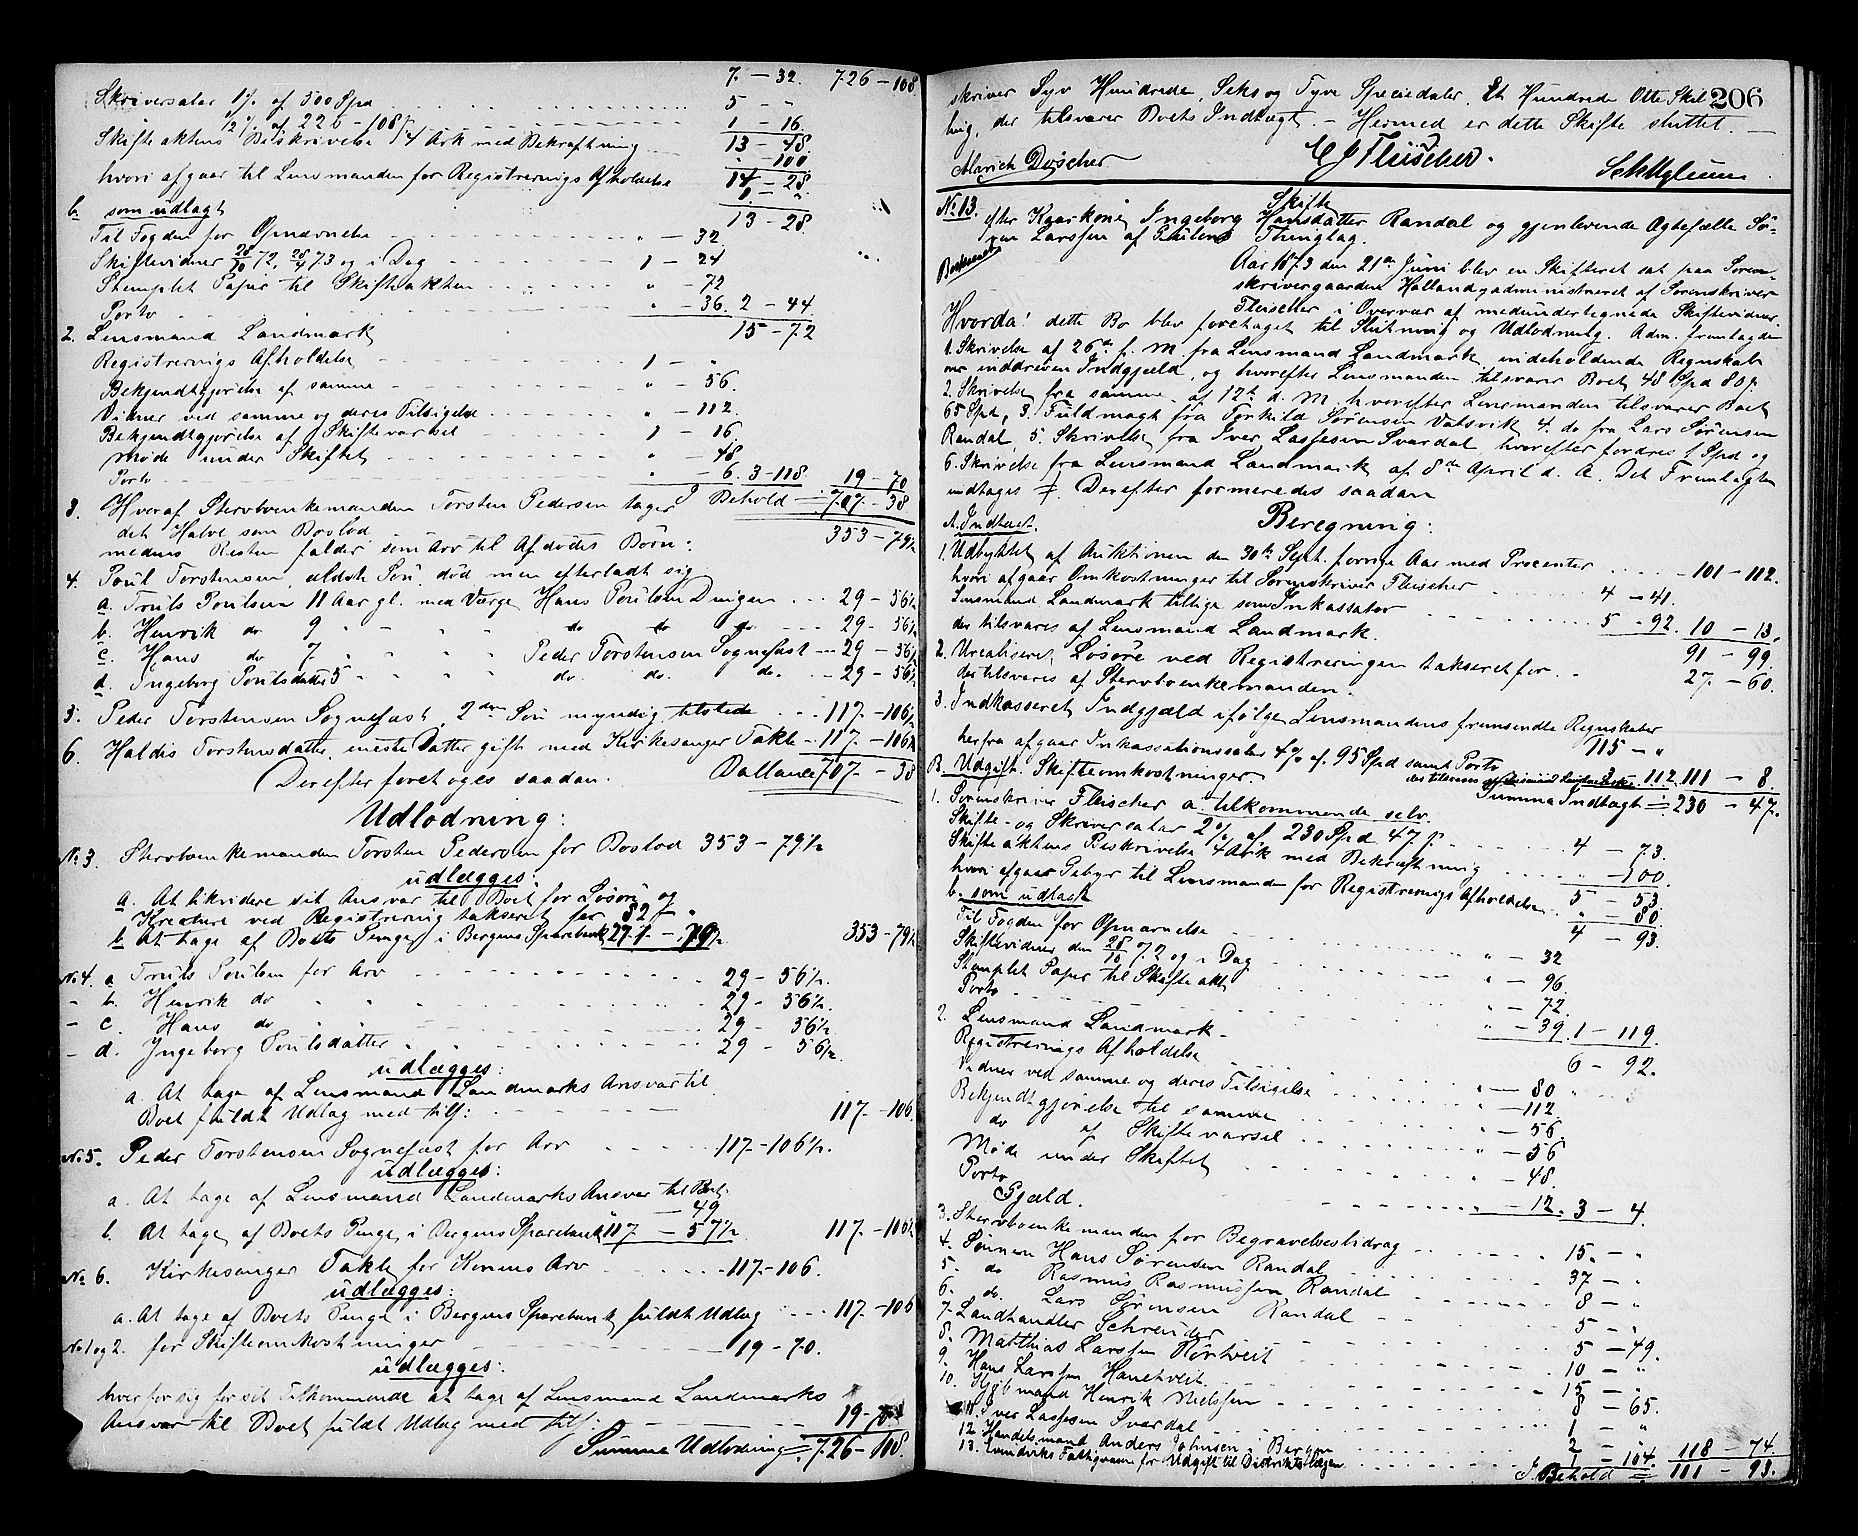 7. - 32. 726 - 108.
Skriversalar 1% af 500 Spd 5 - "
1/2 % af 226 - 108 1 - 16
Skifteaktens Beskrivelse 4 Ark med Bekræftning 13 - 48.
" - 100
hvori afgaar til Lensmanden for Registrerings Afholdelse 14 - 28
1 - "
b. som udlagt 13 - 28
Til Fogden for Opnævnelse " - 32.
Skiftevidner 28/10 72, 28/4 73 og i Dag 1 - 24
Stemplet Papir til Skifteakten " - 72
Porto " - 36. 2 - 44
2. Lensmand Landmark 15 - 72
Registrerings Afholdelse 1 - "
Bekjendtgjørelse af samme " - 56.
Vidner ved samme og deres Tilsigelse " - 112.
Bekjendtgjørelse af Skiftevarsel 1 - 16
Møde under Skiftet " - 48
Porto " - 6. 3 - 118. 19 - 70
I Behold = 707 - 38
3. Hveraf Stervboenkemanden Torsten Pedersen tager
det Halve som Boslod 353 - 79½
medens Resten falder som Arv til Afdødes Børn:
4. Poul Torstensen, ældste Søn, død men efterladt sig
a. Truls Poulsen 11 Aar gl. med Værge Hans Poulsen Dingen 29 - 56½
b. Henrik do 9 " " " do do do 29 - 56½
c. Hans do 7 " " " Peder Torstensen Sognefast 29 - 56½
d. Ingeborg Poulsdatter 5 " " " do. do. do. 29 - 56½
5. Peder Torstensen Sognefast, 2den Søn myndig, tilstede 117 - 106½
6. Haldis Torstensdatter, eneste Datter gift med Kirkesanger Takle 117 - 106½
Derefter foretoges saadan. Ballance 707 - 38
Udlodning:
No. 3. Stervboenkemanden Torsten Pedersen for Boslod 353 - 79½
udlægges:
a. At likvidere sit Ansvar til Boet for Løsøre og
Kreature ved Registrering takseret for 82 - "
b. At tage af Boets Penge i Bergens Sparebank 271 - 79½. 353 - 79½
No. 4. a Truls Poulsen for Arv 29 - 56½.
- b. Henrik do " " 29 - 56½
- c. Hans do " " 29 - 56½
- d. Ingeborg Poulsdatter " " 29 - 56½.
udlægges:
a. At tage af Lensmand Landmarks Ansvar til
Boet fuldt Udlag med tils: 117 - 106
No. 5. Peder Torstensen Sognefast for Arv 117 - 106½.
udlægges:
a. At tage af Lensmand Landmarks Ansvar til Boet
- 49
b. At tage af Boets Penge i Bergens Sparebank 117 - 57½ 117 - 106½
No. 6. Kirkesanger Takle for Konens Arv 117 - 106.
udlægges:
a. At tage af Boets Penge i Bergens Sparebank fuldt Udlag 117 - 106
No. 1 og 2. for Skifteomkostninger 19 - 70.
udlægges:
hver for sig for sit Tilkommende at tage af Lensmand Landmarks
Ansvar til Boet fuldt Udlag med tils. 19 - 70
Summa Udlodning = 726 - 108
206
skriver Syv Hundrede, Seks og Tyve Speciedaler, Et Hundrede Otte Skil
ling, der tilsvarer Boets Indtægt. - Hermed er dette Skifte sluttet.
Alarich Døscher EJ Fleischer.
No. 13. Skifte
efter Kaarkone Ingeborg Hansdatter Randal og gjenlevende Ægtefælle Sø-
ren Larssen af Thinglag.
Aar 1873 den 21de Juni blev en Skifteret sat paa Soren-
skrivergaarden Halland administreret af Sorenskriver
Fleischer i Overvær af medundertegnede Skiftevidner.
Hvorda: dette Bo blev foretaget til Slutning og Udlodning. Adm. fremlagde
1. Skrivelse af 26de f. M. fra Lensmand Landmark, indeholdende Regnskab
over inddreven Indgjæld, og hvorefter Lensmanden tilsvarer Boet 48 Spd 80 s.
2. Skrivelse fra samme af 12te d. M. hvorefter Lensmanden tilsvarer Boet
65 Spd, 3. Fuldmagt fra Torkild Sørensen Vatsvik 4. do fra Lars Sørensen
Randal, 5. Skrivelse fra Iver Lassesen Svardal hvorefter fordres 1 Spd og
6. Skrivelse fra Lensmand Landmark af 8de April d. A. Det Fremlagte
indtages #. Derefter formeredes saadan
Beregning:
A. Indtægt.
1. Udbyttet af Auktionen den 30te Sept. forrige Aar med Procenter 101 - 112.
hvori afgaar Omkostninger til Sorenskriver Fleischer 4 - 41.
Lensmand Landmark tillige som Inkassator 5 - 92. 10 - 13.
der tilsvares af Lensmand Landmark. 91 - 99.
2. Urealiseret Løsøre ved Registreringen takseret for 27 - 60.
der tilsvares af Stervboenkemanden.
3. Indkasseret Indgjæld ifølge Lensmandens fremsendte Regnskaber
115 - "
herfra afgaar Inkassationssalar 4% af 95 Spd samt Porto
3. 112. 111 - 8.
Summa Indtægt = 230 - 47.
B. Udgift. Skifteomkostninger
1. Sorenskriver Fleischer a. tilkommende selv.
Skifte- og Skriversalar 2% af 230 Spd 47 s. 4 - 73.
Skifteaktens Beskrivelse 4 Ark med Bekræftning " - 100.
5 - 53.
hvori afgaar Gebyr til Lensmanden for Registrerings Afholdelse " - 80
b. som udlagt 4 - 93.
Til Fogden for Opnævnelse " - 32
Skiftevidner den 28/10 72 og i Dag " - 96.
Stemplet Papir til Skifteakt " - 72.
Porto " - 39. 1 - 119.
2. Lensmand Landmark 6 - 92.
Registrerings Afholdelse " - 80
Vidner ved samme og deres Tilsigelse " - 112.
Bekjendtgjørelse til samme " - 56
do af Skiftevarsel " - 56
Møde under Skiftet " - 48.
Porto " - 12. 3 - 4.
Gjæld.
3. Stervboenkemanden for Begravelsesbidrag 15 - "
4. Sønnen Hans Sørensen Randal 37 - "
5. do Rasmus Rasmussen Randal 8 - "
6. do. Lars Sørensen Randal 5 - "
7. Landhandler Schreuder 5 - 49.
8. Matthias Larssen Hortveit 10 - "
9. Hans Larssen Hanekveit 15 - "
10. Kjøbmand Henrik Nielssen 8 - 65.
11. Iver Lassesen Svardal 1 - "
12. Handelsmand Anders Johnsen i Bergen 2 - "
13. Evindviks Fattigvæsen for Udgift til Distriktslægen 1 - 104. 118 - 74.
I Behold = 101 - 93.